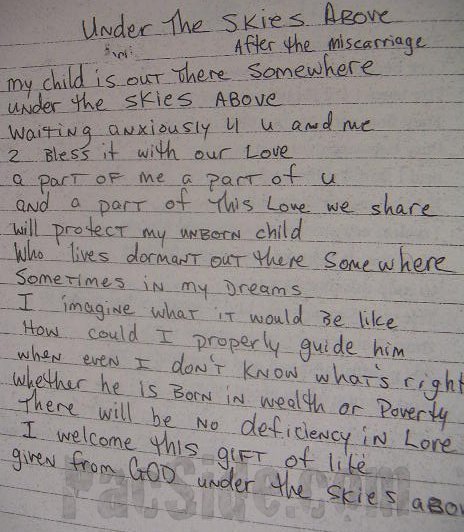 Under The Skies Above
After the miscarriage
my child is out there somewhere
under the skies above
waiting anxiously 4 u and me
2 Bless it with our Love
a part of me a part of u
and a part of this Love we share
will protect my unborn child
who lives dormant out there somewhere
Sometimes in my Dreams
I imagine what it would be like
How could I properly guide him
when even I don't know what's right
whether he is Born in wealth or Poverty
There will be no deficiency in Love
I welcome this gift of life
given from GOD under the skies abov
PacSide.com